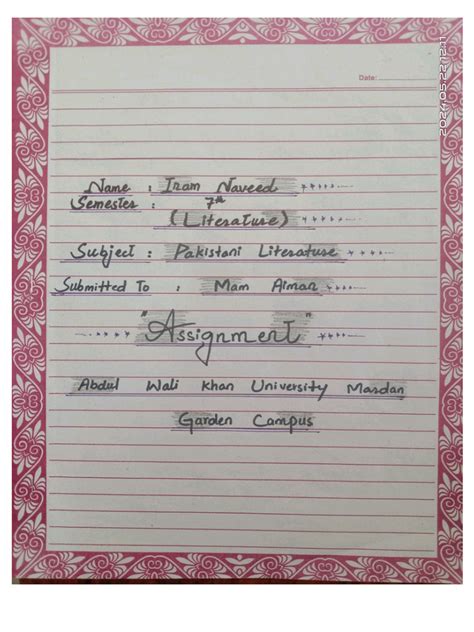 Date:
2024.05.22 12:11
Name : Iram Naveed
Semester : 7th
(Literature)
Subject : Pakistani Literature
Submitted To : Mam Aiman
"Assignment"
Abdul Wali Khan University Mardan
Garden Campus